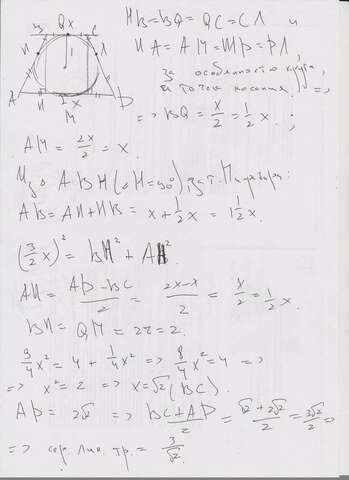 B Q x C
И Л
A H 2x M D
ИB = BQ = QC = CЛ и
ИA = AM = MD = DЛ,
за особеностю круга,
точок =>
=> BQ = x/2 = 1/2 x. ;
AM = 2x/2 = x.
Из Δ ABH (∠H = 90°), за т. Піфагора:
AB = AИ + ИB = x + 1/2 x = 1 1/2 x.
(3/2 x)² = BH² + AH².
AH = (AD - BC)/2 = (2x - x)/2 = x/2 = 1/2 x.
BH = QM = 2r = 2.
9/4 x² = 4 + 1/4 x² => 8/4 x² = 4 =>
=> x² = 2 => x = √2 (BC).
AD = 2√2 => (BC + AD)/2 = (√2 + 2√2)/2 = 3√2/2 =>
=> сер. лин. тр. = 3/√2.